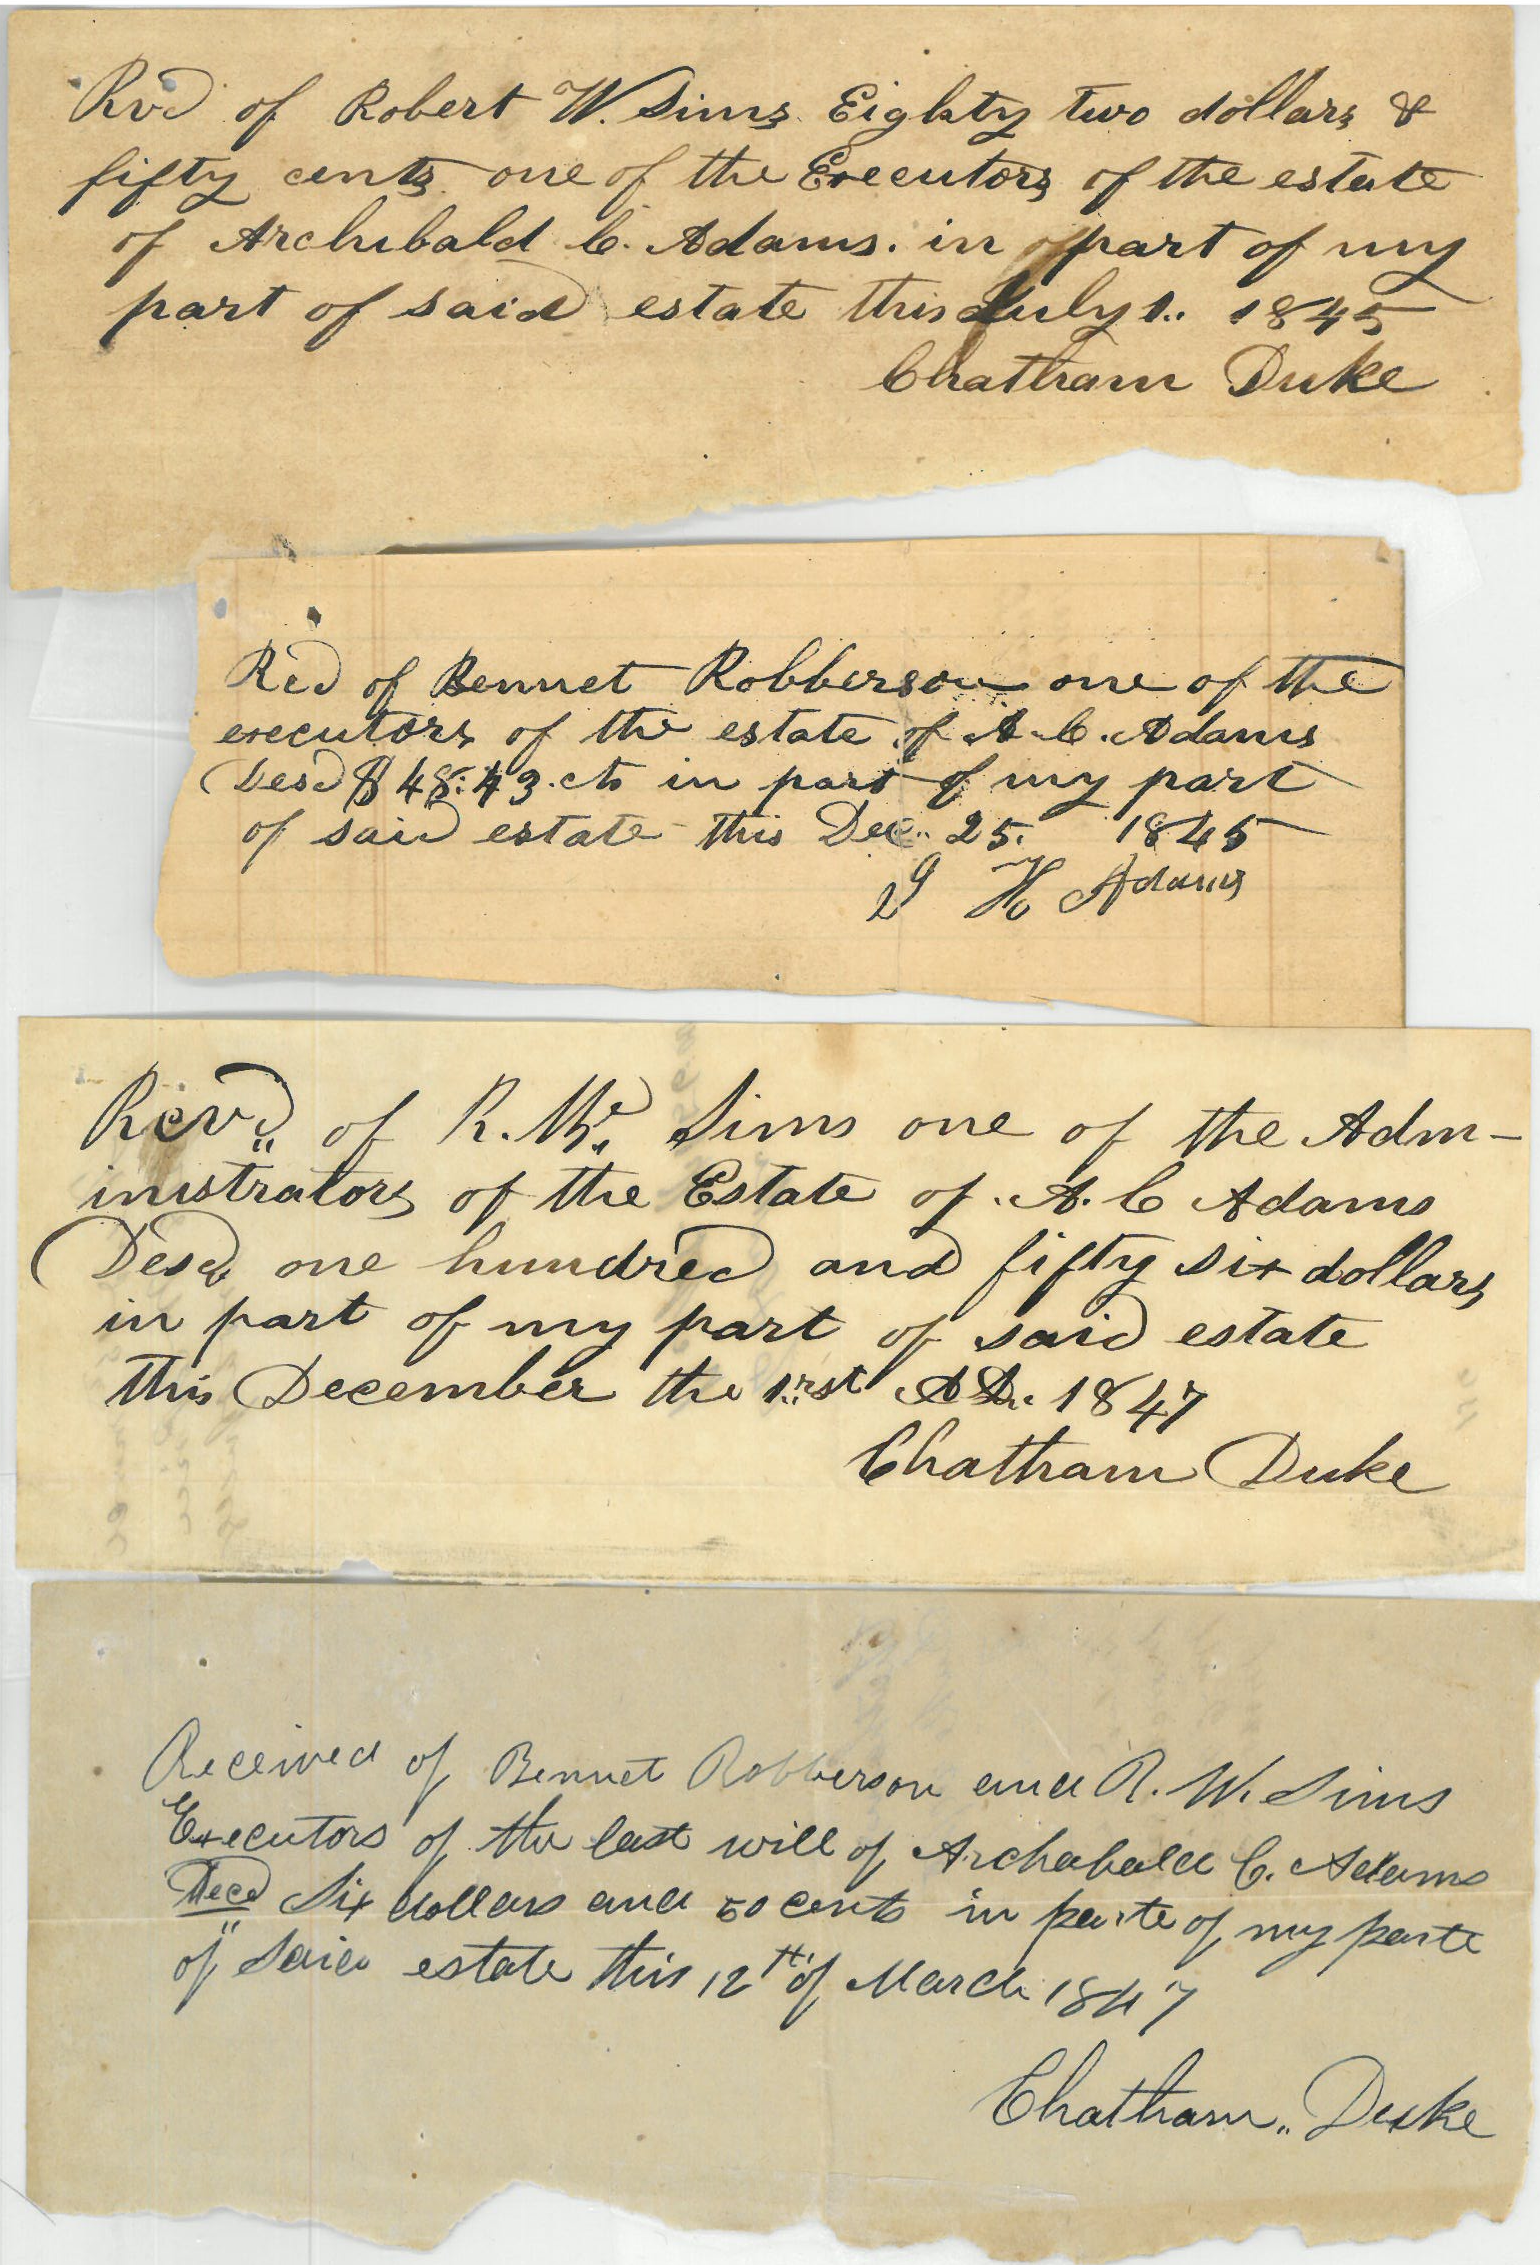 Rvd of Robert W. Sims Eighty two dollars &
fifty cents one of the Executors of the estate
of Archibald C. Adams. in part of my
part of said estate this July 1.. 1845
Chatham Duke
Red of Bennet Robberson one of the
executors of the estate of A. C. Adams
Desd $48.43.cts in part of my part
of said estate this Dec.. 25. 1845
H Adams
Rcvd of R. Sims one of the Adm-
inistrators of the Estate of A. C Adams
Desd one hundred and fifty six dollars
in part of my part of said estate
this December the 1.rst AD.. 1847
Chatham Duke
Received of Bennet Robberson and R. W. Sims
Executors of the last will of Archabald C. Adams
Decd Six dollars and 50 cents in parte of my parte
of Said estate this 12th of March 1847
Chatham,, Duke